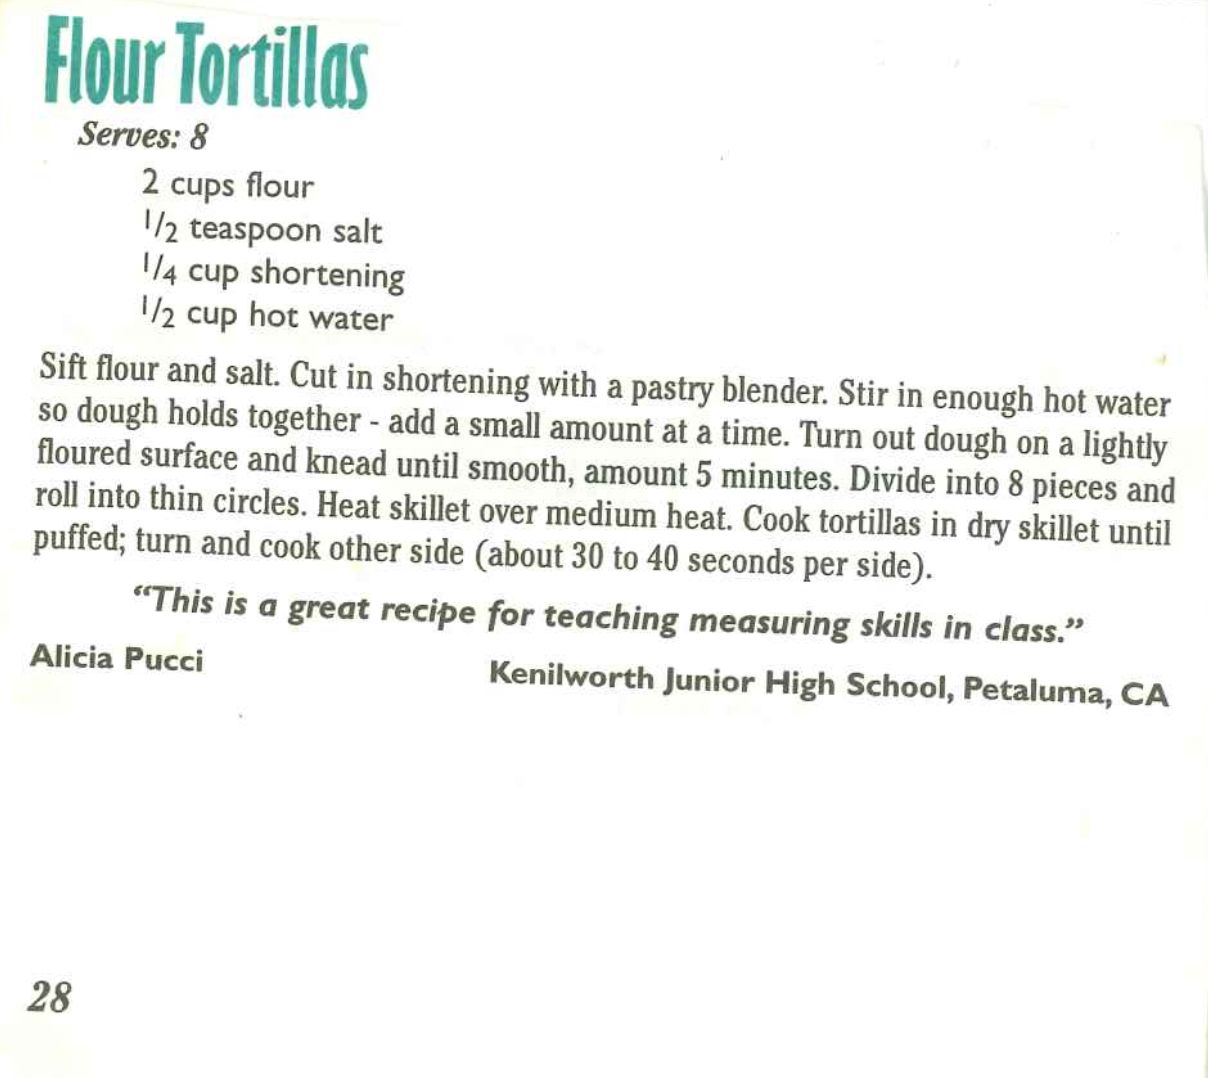 Flour Tortillas
Serves: 8
2 cups flour
1/2 teaspoon salt
1/4 cup shortening
1/2 cup hot water
Sift flour and salt. Cut in shortening with a pastry blender. Stir in enough hot water
so dough holds together - add a small amount at a time. Turn out dough on a lightly
floured surface and knead until smooth, amount 5 minutes. Divide into 8 pieces and
roll into thin circles. Heat skillet over medium heat. Cook tortillas in dry skillet until
puffed; turn and cook other side (about 30 to 40 seconds per side).
“This is a great recipe for teaching measuring skills in class.”
Alicia Pucci
Kenilworth Junior High School, Petaluma, CA
28